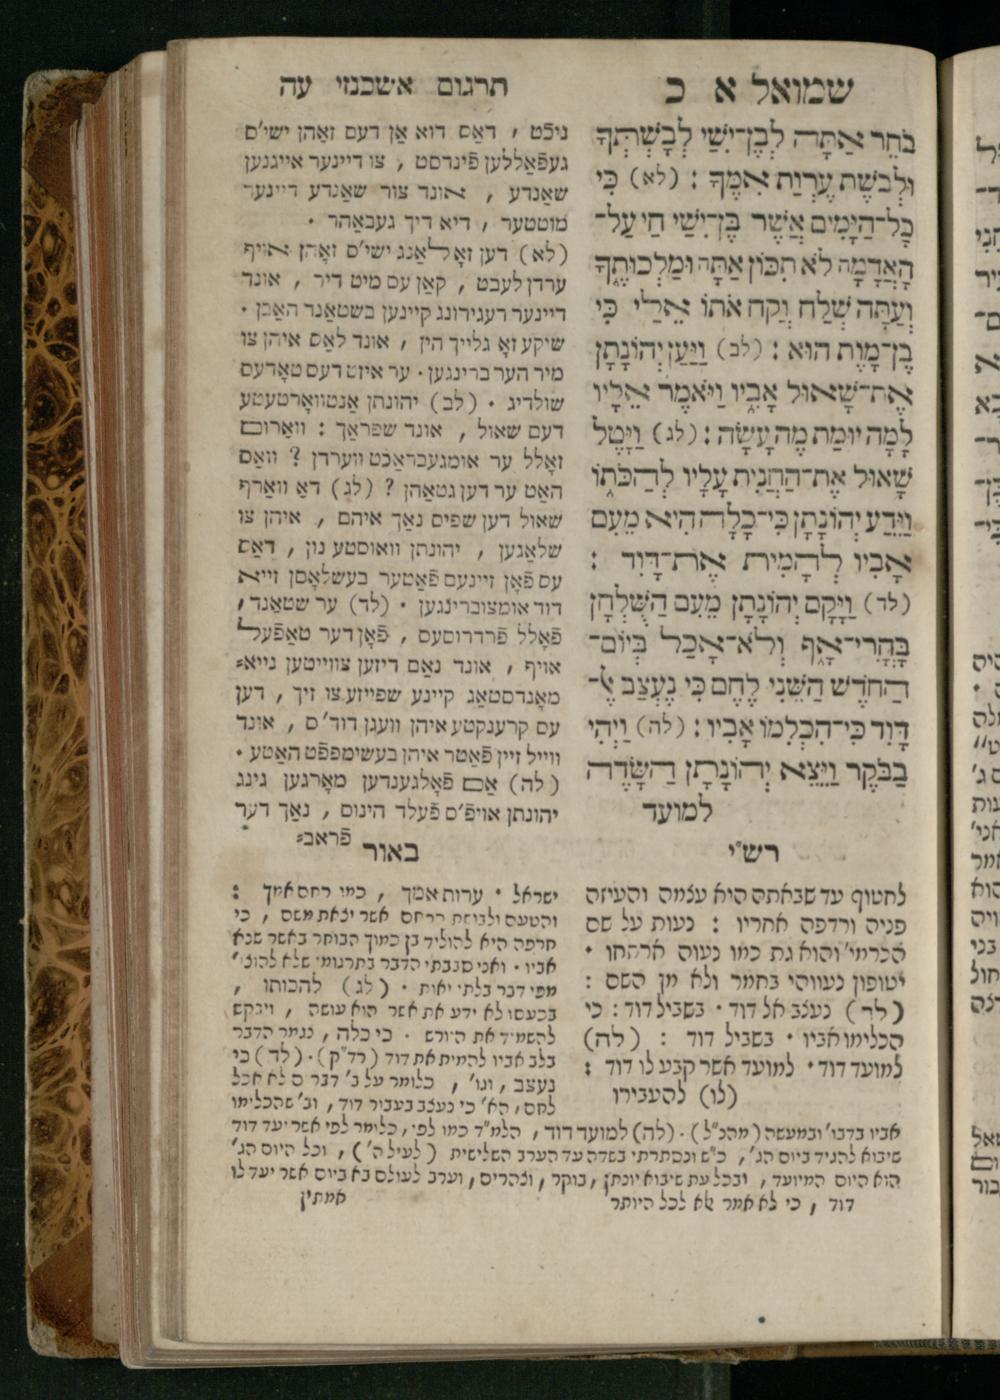 שמואל א כ
בֹחֵר אַתָּה לְבֶן־יִשַׁי לְבָשְׁתְּךָ
וּלְבֹשֶׁת עֶרְוַת אִמֶּךָ : (לא) כִּי
כָל־הַיָּמִים אֲשֶׁר בֶּן־יִשַׁי חַי עַל־
הָאֲדָמָה לֹא תִכּוֹן אַתָּה וּמַלְכוּתֶךָ
וְעַתָּה שְׁלַח וְקַח אֹתוֹ אֵלַי כִּי
בֶן־מָוֶת הוּא : (לב) וַיַּעַן יְהוֹנָתָן
אֶת־שָׁאוּל אָבִיו וַיֹּאמֶר אֵלָיו
לָמָּה יוּמַת מֶה עָשָׂה : (לג) וַיָּטֶל
שָׁאוּל אֶת־הַחֲנִית עָלָיו לְהַכֹּתוֹ
וַיֵּדַע יְהוֹנָתָן כִּי־כָלָה הִיא מֵעִם
אָבִיו לְהָמִית אֶת־דָּוִד :
(לד) וַיָּקָם יְהוֹנָתָן מֵעִם הַשֻּׁלְחָן
בָּחֳרִי־אָף וְלֹא־אָכַל בְּיוֹם־
הַחֹדֶשׁ הַשֵּׁנִי לֶחֶם כִּי נֶעְצַב אֶל־
דָּוִד כִּי־הִכְלִמוֹ אָבִיו : (לה) וַיְהִי
בַבֹּקֶר וַיֵּצֵא יְהוֹנָתָן הַשָּׂדֶה
למועד
תרגום אשכנזי עה
ניכֿט , דאַס דוא אָן דעם זאָהן ישי'ם
געפֿאַללען פֿינדסט , צו דיינער אייגנען
שאַנדע , אונד צור שאַנדע דיינער
מוטטער , דיא דיך געבאָהר .
(לא) דען זאָ לאַנג ישי'ם זאָהן אויף
ערדן לעבט , קאַן עס מיט דיר , אונד
דיינער רעגירונג קיינען בשטאַנד האבן .
שיקע זאָ גלייך הין , אונד לאַס איהן צו
מיר הער ברינגען . ער איזט דעס טאָדעס
שולדיג . (לב) יהונתן אַנטוואָרטעטע
דעם שאול , אונד שפראַך : ווארום
זאָלל ער אומגעבראַכֿט ווערדן ? וואַס
האַט ער דען געטאַהן ? (לג) דאַ ווארף
שאול דען שפיס נאַך איהם , איהן צו
שלאַגען , יהונתן וואוסטע נון , דאַס
עס פֿאָן זיינעם פֿאַטער בעשלאָסן זייא
דוד אומצוברינגען . (לד) ער שטאַנד ,
פֿאָלל פֿרדרוסעס , פֿאָן דער טאַפֿעל
אויף , אונד נאַם דיזען צווייטען נייא=
מאָנדסטאַג קיינע שפייזע צו זיך , דען
עס קרענקטע איהן וועגן דוד'ס , אונד
ווייל זיין פֿאַטר איהן בעשימפפֿט האַטע .
(לה) אַם פֿאָלגענדען מאָרגען גינג
יהונתן אויפֿ'ס פֿעלד הינוס , נאַך דער
פֿראב=
רש"י
לחטוף עד שבאתה היא עצמה והעיזה
פניה ורדפה אחריו : נעות על שם
הכרמי' והוא גת כמו נעוה ארחתו .
יטופון נעווהי בחמר ולא מן השם :
(לד) נעצב אל דוד . בשביל דוד : כי
הכלימו אביו . בשביל דוד : (לה)
למועד דוד . למועד אשר קבע לו דוד :
(לו) להעבירו
באור
ישראל . ערות אמך , כמו רחם אמך :
והטעם ולבושת הרחם אשר יצאת משם , כי
חרפה היא להוליד בן כמוך הבוחר באשר שנא
אביו . ואני סבבתי הדבר בתרגומי שלא להוצי'
מפי דבר בלתי יאות . (לג) להכותו ,
בכעסו לא ידע את אשר הוא עושה , ויבקש
להשמיד את היורש . כי כלה , נגמר הדבר
בלב אביו להמית את דוד (רד"ק) . (לד) כי
נעצב , וגו' , כלומר על ב' דברים לא אכל
לחם , הא' כי נעצב בעבור דוד , וב' שהכלימו
אביו בדבו' ובמעשה (מהכ"ל) . (לה) למועד דוד , הלמ"ד כמו לפי , כלומר לפי אשר יעד דוד
שיבוא להגיד ביום הג' , כ"ש ונסתרתי בשדה עד הערב השלישית (לעיל ה') , וכל היום הג'
הוא היום המיועד , ובכל עת שיבוא יונתן , בוקר , וצהרים , וערב לעולם בא ביום אשר יעד לו
דוד , כי לא אמר לא לכל היותר
אמתין